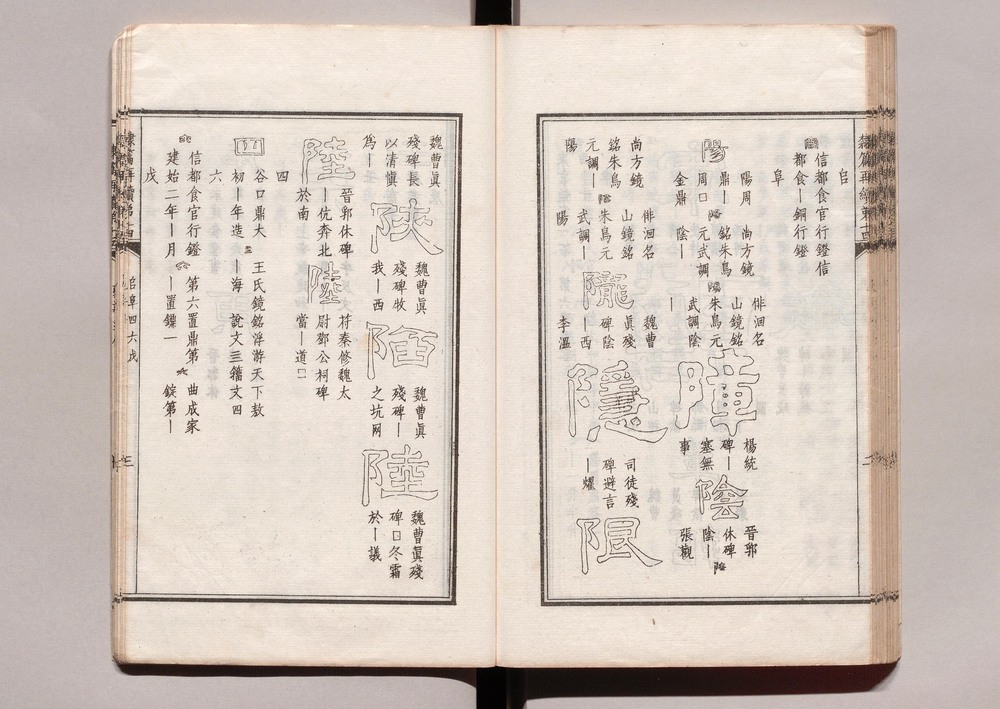 信都食官行鐙信
都食｜銅行鐙
阜
陽
陽周
鼎｜
周口
金鼎
陽
尚方鏡
銘朱鳥
元武調
陰｜
陽
俳洄名
山鏡銘
朱鳥元
武調陰
｜
陣
楊統
碑｜
塞無
事
陰
晉郭
休碑
陰｜
張觀
陰
尚方鏡
銘朱鳥
元調｜
陽
陰
俳洄名
山鏡銘
朱鳥元
武調｜
陽
隴
魏曹
眞殘
碑陰
｜
李溫
隱
司徒殘
碑避言
｜燿
限
魏曹眞
殘碑長
以清愼
爲｜
陝
魏曹眞
殘碑牧
我｜西
陷
魏曹眞
殘碑｜
之坑网
陸
魏曹眞殘
碑口冬霜
於｜議
陸
晉郭休碑
｜伉奔北
於南上
陸
苻秦修魏太
尉鄧公祠碑
當｜道口
四
四
谷口鼎大
初｜年造
王氏鏡銘浮游天下敖
｜海　說文亖籒文四
六
信都食官行鐙
建始二年｜月
第六置鼎第
｜置鏁一
曲成家
錠第｜
戊
隸篇再續第十四
阜四六戊
三